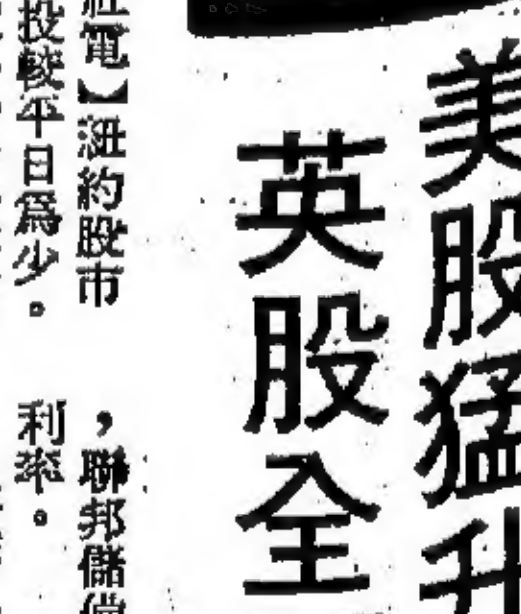 美股猛升
英股全
社電】紐約股市
投較平日爲少。
，聯邦儲備
利率。